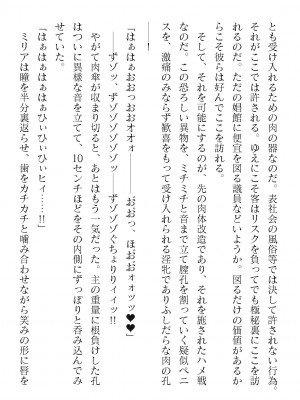 とも受け入れるための肉の器なのだ。表社会の風俗等では決して許されない行為。
それがここでは許される。ゆえにこそ客はリスクを負ってでも極秘裏にここを訪
れるのだ。ただの娼館に便宜を図る議員などいようか。図るだけの価値があるか
らこそ彼らは好んでここを訪れる。
そして、それを可能にするのが、先の肉体改造であり、それを施されたハメ戦
なのだ。この恐ろしい異物を、ミチミチと音まで立て膣孔を割っていく疑似ペニ
スを、激痛のみならず歓喜をもって受け入れられる淫牝でありふしだらな肉の孔
「はぉはぉおおっおおオォォ――――――おおっ、ほおおォオッツ♥♥」
――ずゾッ、ずゾゾゾゾゾッ――ずゾゾゾぐちょりりイイッ!!
やがて肉傘が収まり切ると、あとはもう一気だった。主の重量に根負けした孔
はついに異様な音を立てて、10センチほどをその内側にずっぽりと呑み込んでみ
せていた。
「はぁはぁはぁはぁひぃひぃひぃヒィ……!!」
ミリアは瞳を半分裏返らせ、歯をカチカチと噛み合わせながら笑みの形に唇を